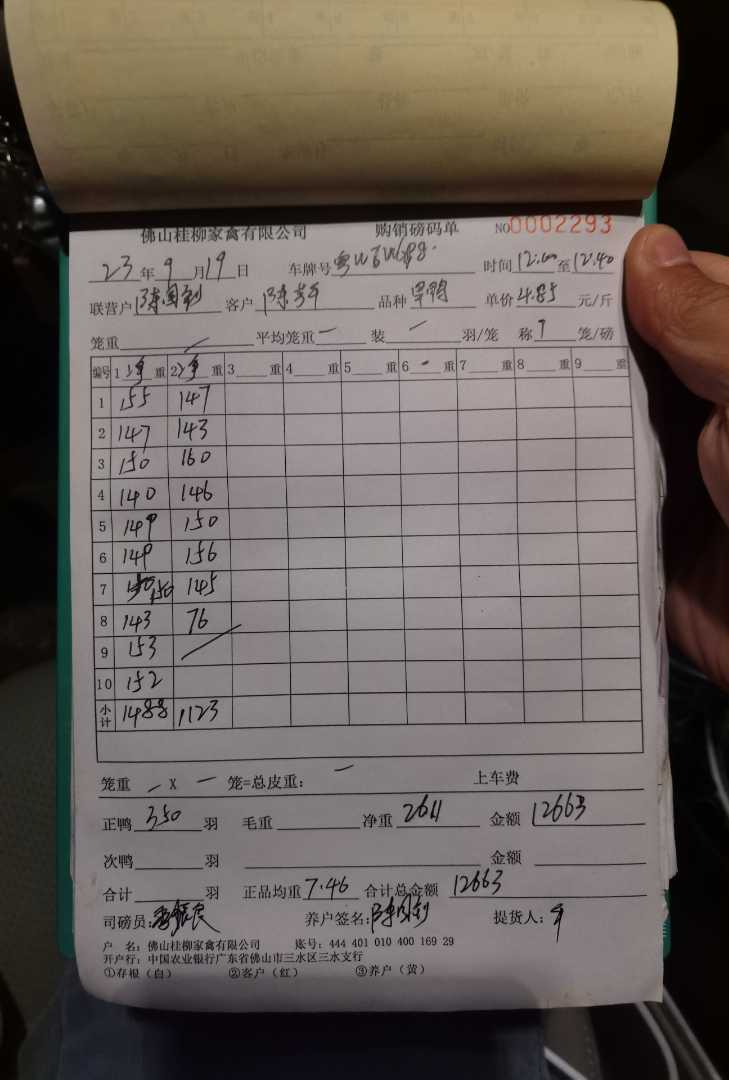 佛山桂柳家禽有限公司 购销磅码单 NO0002293
23年9月19日 车牌号 时间12.00至12.40
联营户 陈国剑 客户 陈 品种 单价4.85元/斤
笼重 平均笼重 装 羽/笼 称7笼/磅
编号 1净重 2净重 3重 4重 5重 6重 7重 8重 9重
1 155 147
2 147 143
3 150 160
4 140 146
5 149 150
6 149 156
7 150 145
8 143 76
9 153
10 152
小计 1488 1123
笼重 X 笼=总皮重: 上车费
正鸭350羽 毛重 净重2611 金额12663
次鸭 羽 金额
合计 羽 正品均重7.46 合计总金额12663
司磅员: 养户签名:陈国剑 提货人:
户 名:佛山桂柳家禽有限公司 账号:444 401 010 400 169 29
开户行:中国农业银行广东省佛山市三水区三水支行
①存根(白) ②客户(红) ③养户(黄)